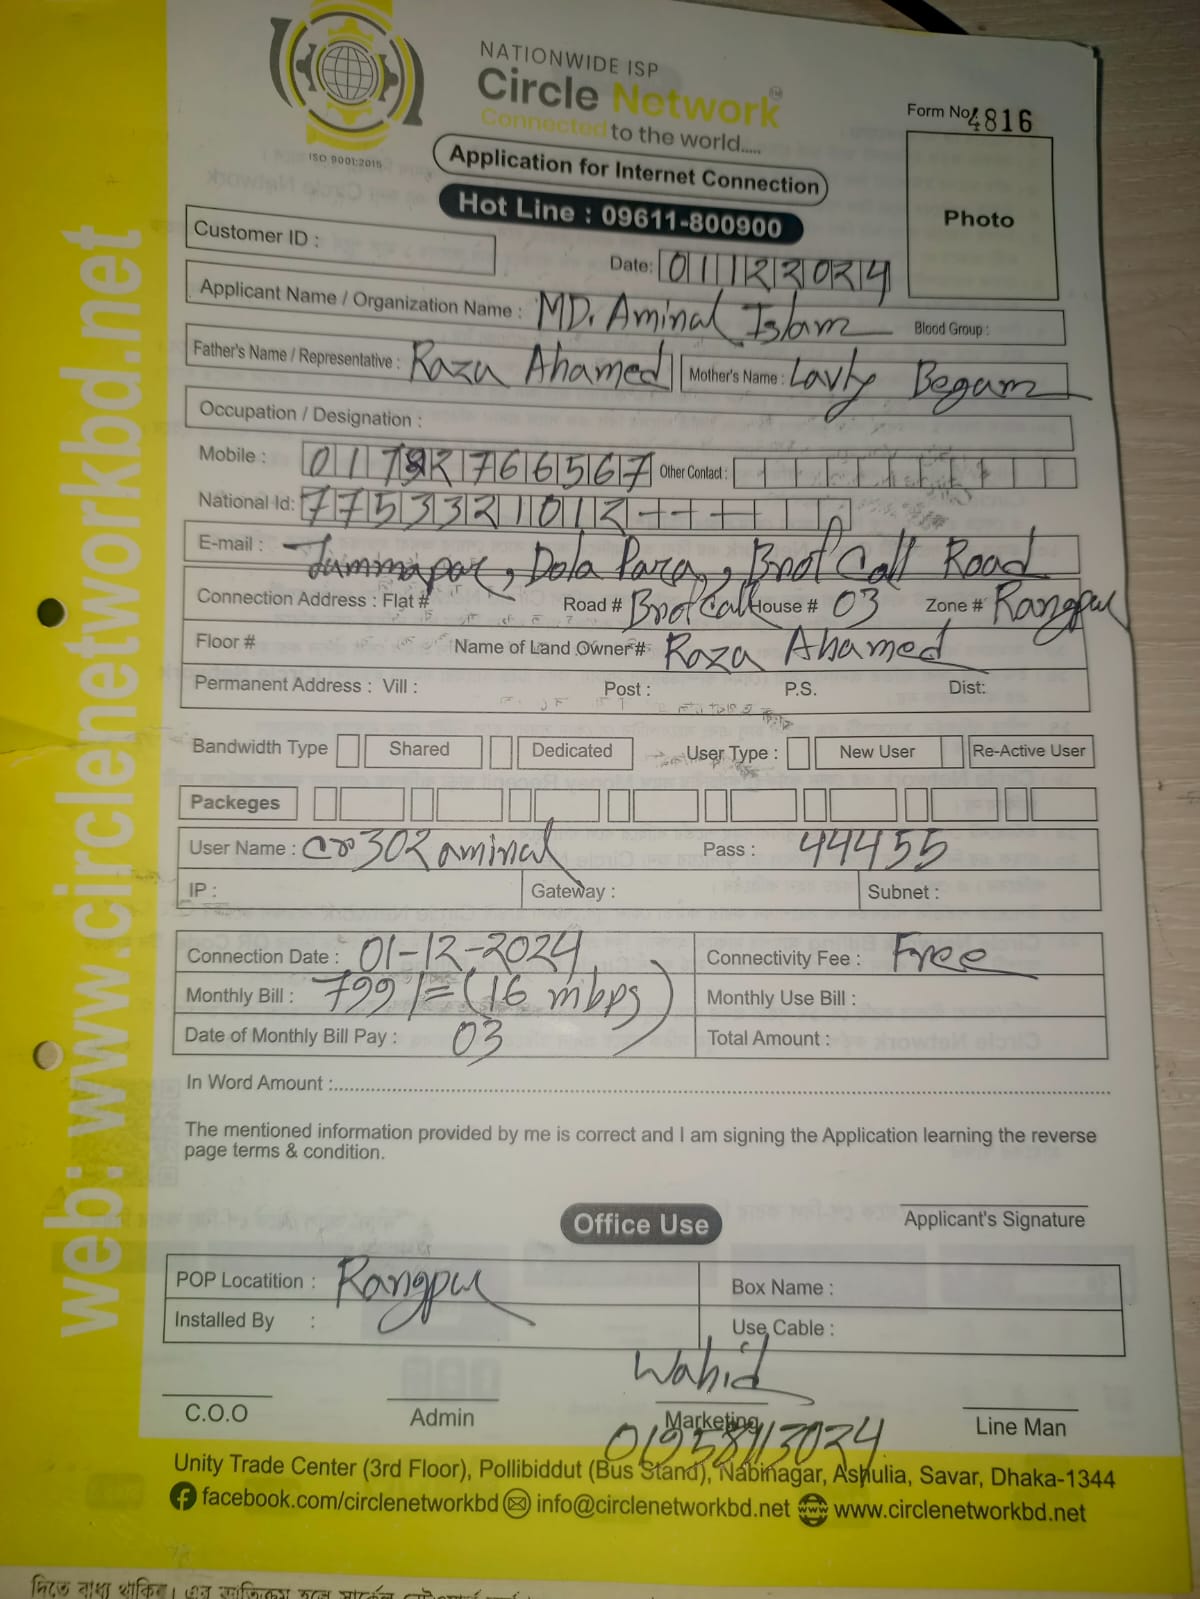 NATIONWIDE ISP
Circle Network
Connected to the world.....
ISO 9001:2015
Form No 4816
Application for Internet Connection
Hot Line : 09611-800900
Photo
Customer ID :
Date: 01122024
Applicant Name / Organization Name : MD. Aminal Islam Blood Group :
Father's Name / Representative : Raza Ahamed Mother's Name : Lavly Begam
Occupation / Designation :
Mobile : 01792766567 Other Contact :
National Id: 7753321012
E-mail : Jummapar, Dola Para, Bnof Call Road
Connection Address : Flat # Road # Bnof Call House # 03 Zone # Rangpur
Floor # Name of Land Owner# Raza Ahamed
Permanent Address : Vill : Post : P.S. Dist:
Bandwidth Type Shared Dedicated User Type : New User Re-Active User
Packeges
User Name : 302 aminal Pass : 44455
IP : Gateway : Subnet :
Connection Date : 01-12-2024 Connectivity Fee : Free
Monthly Bill : 799/= (16 mbps) Monthly Use Bill :
Date of Monthly Bill Pay : 03 Total Amount :
In Word Amount :
The mentioned information provided by me is correct and I am signing the Application learning the reverse
page terms & condition.
Applicant's Signature
Office Use
POP Locatition : Rangpur Box Name :
Installed By : Use Cable :
Wahid
C.O.O Admin Marketing Line Man
01958113024
Unity Trade Center (3rd Floor), Pollibiddut (Bus Stand), Nabinagar, Ashulia, Savar, Dhaka-1344
facebook.com/circlenetworkbd info@circlenetworkbd.net www.circlenetworkbd.net
web: www.circlenetworkbd.net
দিতে বাধ্য থাকিব।